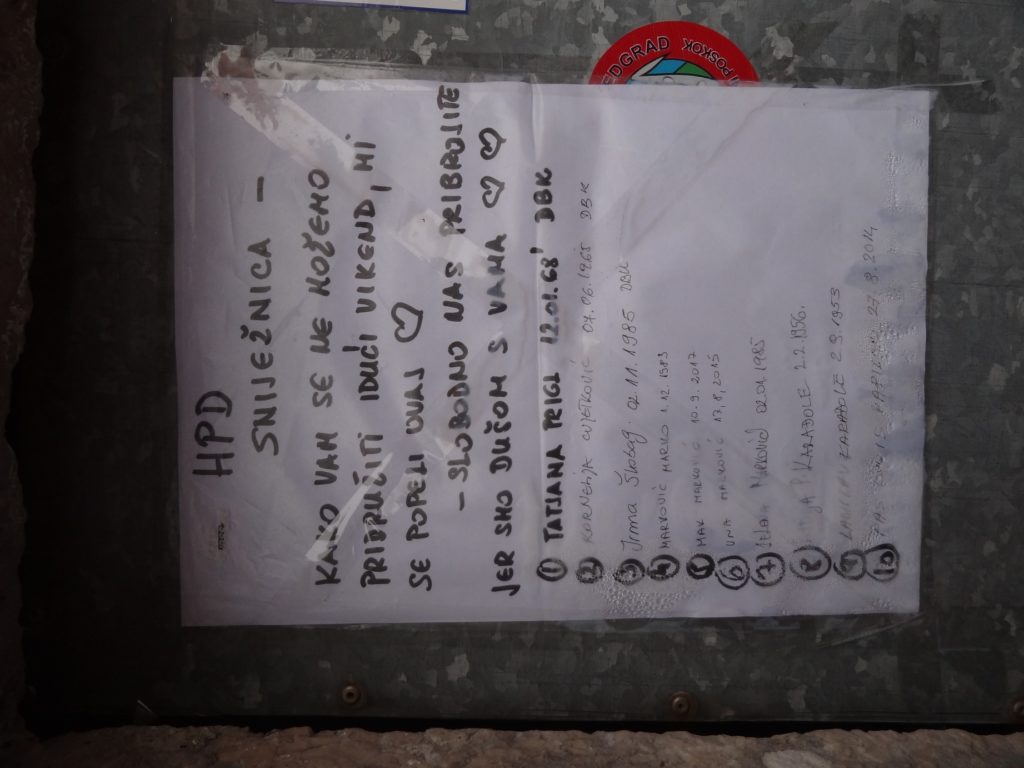 HPD
SNIJEŽNICA -
KAKO VAM SE NE MOŽEMO
PRIDRUŽITI IDUĆI VIKEND, MI
SE POPELI OVAJ ♡
- SLOBODNO NAS PRIBROJITE
JER SMO DUŠOM S VAMA ♡ ♡
① TATJANA PRIGL 12.01.68' DBK
② KORNELIJA CVJETKOVIĆ 07.06.1965 DBK
③ Irma Škobog. 02.11.1985 DBK
④ MARKOVIĆ MARKO 1.12.1983
⑤ MAK MARKOVIĆ 10.9.2017
⑥ UNA MARKOVIĆ 17,8,2015
⑦ MARKOVIĆ 02.01.1985
⑧ KARADOLE 2.2.1956.
⑨ KARADOLE 2.9.1953
⑩ PAS 27.8.2014
EDGRAD
POSKOK